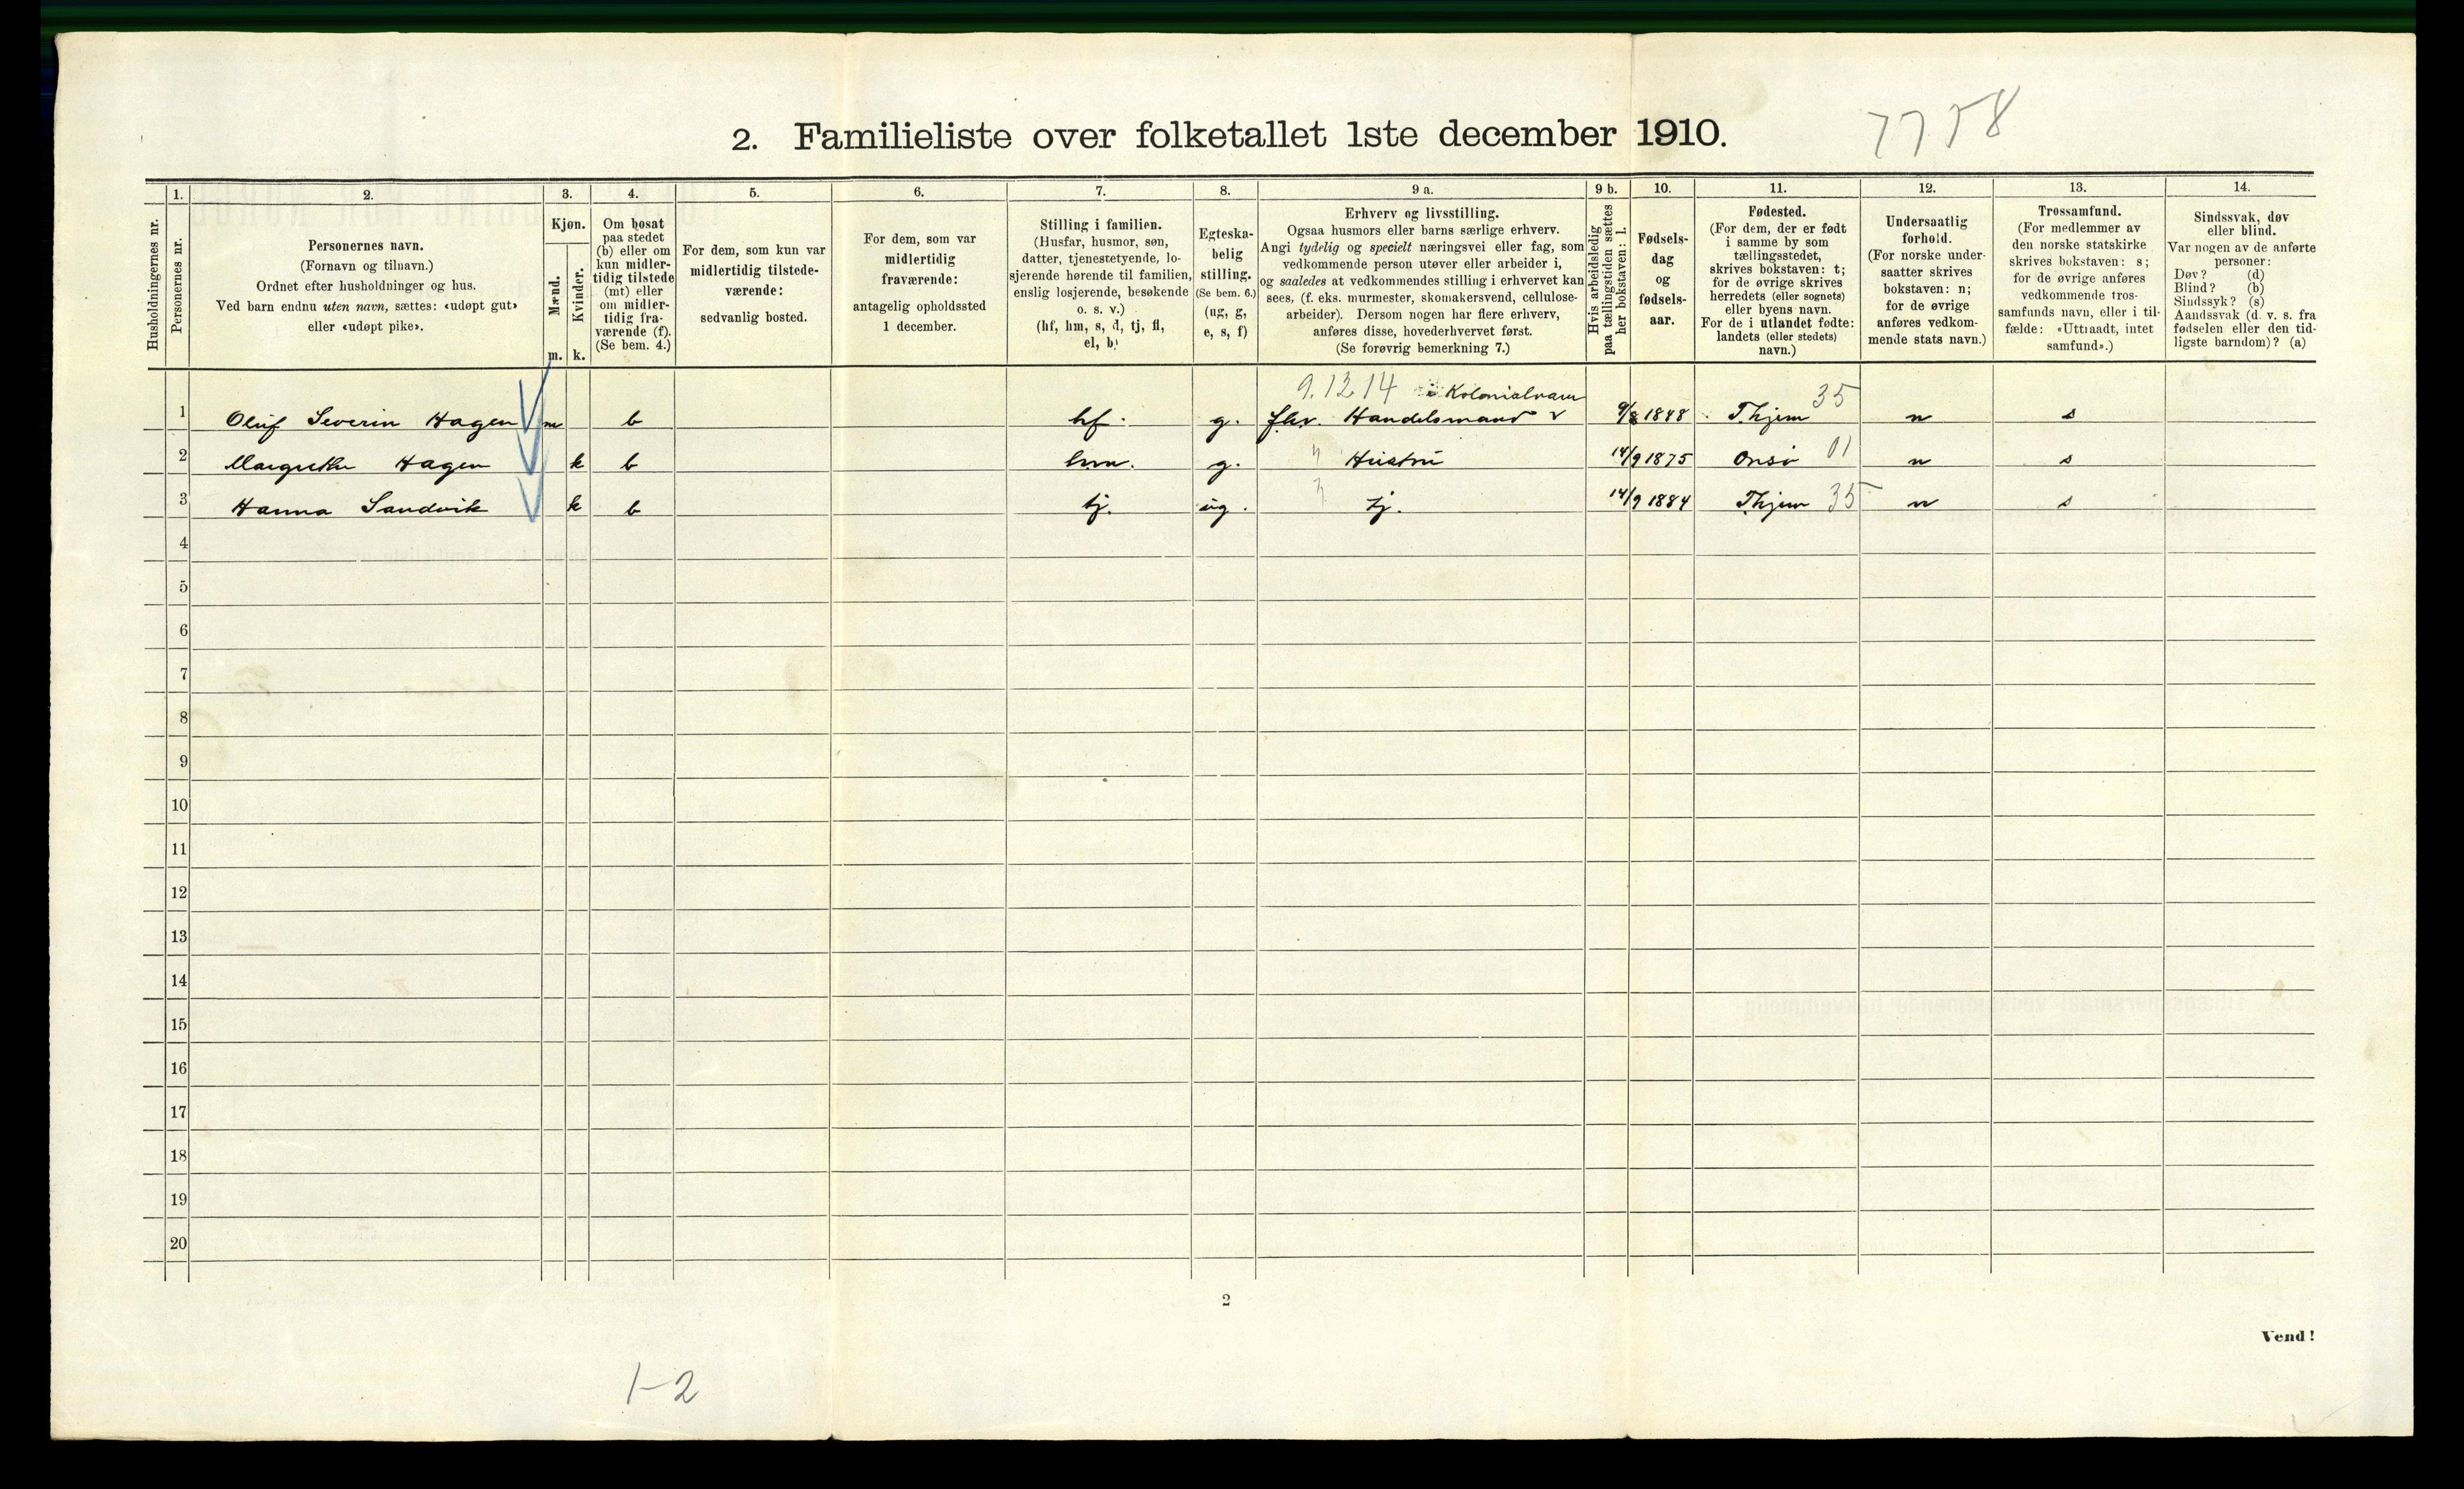 2. Familieliste over folketallet 1ste december 1910.
7758
Husholdningernes nr.
1.
Personernes nr.
2.
Personernes navn.
(Fornavn og tilnavn.)
Ordnet efter husholdninger og hus.
Ved barn endnu uten navn, sættes: «udøpt gut»
eller «udøpt pike».
3.
Kjøn.
Mænd.
Kvinder.
m. k.
4.
Om bosat
paa stedet
(b) eller om
kun midler-
tidig tilstede
(mt) eller
om midler-
tidig fra-
værende (f).
(Se bem. 4.)
5.
For dem, som kun var
midlertidig tilstede-
værende:
sedvanlig bosted.
6.
For dem, som var
midlertidig
fraværende:
antagelig opholdssted
1 december.
7.
Stilling i familien.
(Husfar, husmor, søn,
datter, tjenestetyende, lo-
sjerende hørende til familien,
enslig losjerende, besøkende
o. s. v.)
(hf, hm, s, d, tj, fl,
el, b)
8.
Egteska-
belig
stilling.
(Se bem. 6.)
(ug, g,
e, s, f)
9 a.
Erhverv og livsstilling.
Ogsaa husmors eller barns særlige erhverv.
Angi tydelig og specielt næringsvei eller fag, som
vedkommende person utøver eller arbeider i,
og saaledes at vedkommendes stilling i erhvervet kan
sees, (f. eks. murmester, skomakersvend, cellulose-
arbeider). Dersom nogen har flere erhverv,
anføres disse, hovederhvervet først.
(Se forøvrig bemerkning 7.)
9 b.
Hvis arbeidsledig
paa tællingstiden sættes
her bokstaven: l.
10.
Fødsels-
dag
og
fødsels-
aar.
11.
Fødested.
(For dem, der er født
i samme by som
tællingsstedet,
skrives bokstaven: t;
for de øvrige skrives
herredets (eller sognets)
eller byens navn.
For de i utlandet fødte:
landets (eller stedets)
navn.)
12.
Undersaatlig
forhold.
(For norske under-
saatter skrives
bokstaven: n;
for de øvrige
anføres vedkom-
mende stats navn.)
13.
Trossamfund.
(For medlemmer av
den norske statskirke
skrives bokstaven: s;
for de øvrige anføres
vedkommende tros-
samfunds navn, eller i til-
fælde: «Uttraadt, intet
samfund».)
14.
Sindssvak, døv
eller blind.
Var nogen av de anførte
personer:
Døv? (d)
Blind? (b)
Sindssyk? (s)
Aandssvak (d. v. s. fra
fødselen eller den tid-
ligste barndom)? (a)
9.12 14 i Kolonialvarer
1 Oluf Severin Hagen m b hf. g. fhv. Handelsmand 9/8 1848 Thjem 35 n s
2 Margrethe Hagen k b hm. g. Hustru 14/9 1875 Onsø 01 n s
3 Hanna Sandvik k b tj. ug. tj. 14/9 1884 Thjem 35 n s
4
5
6
7
8
9
10
11
12
13
14
15
16
17
18
19
20
2
Vend!
1-2